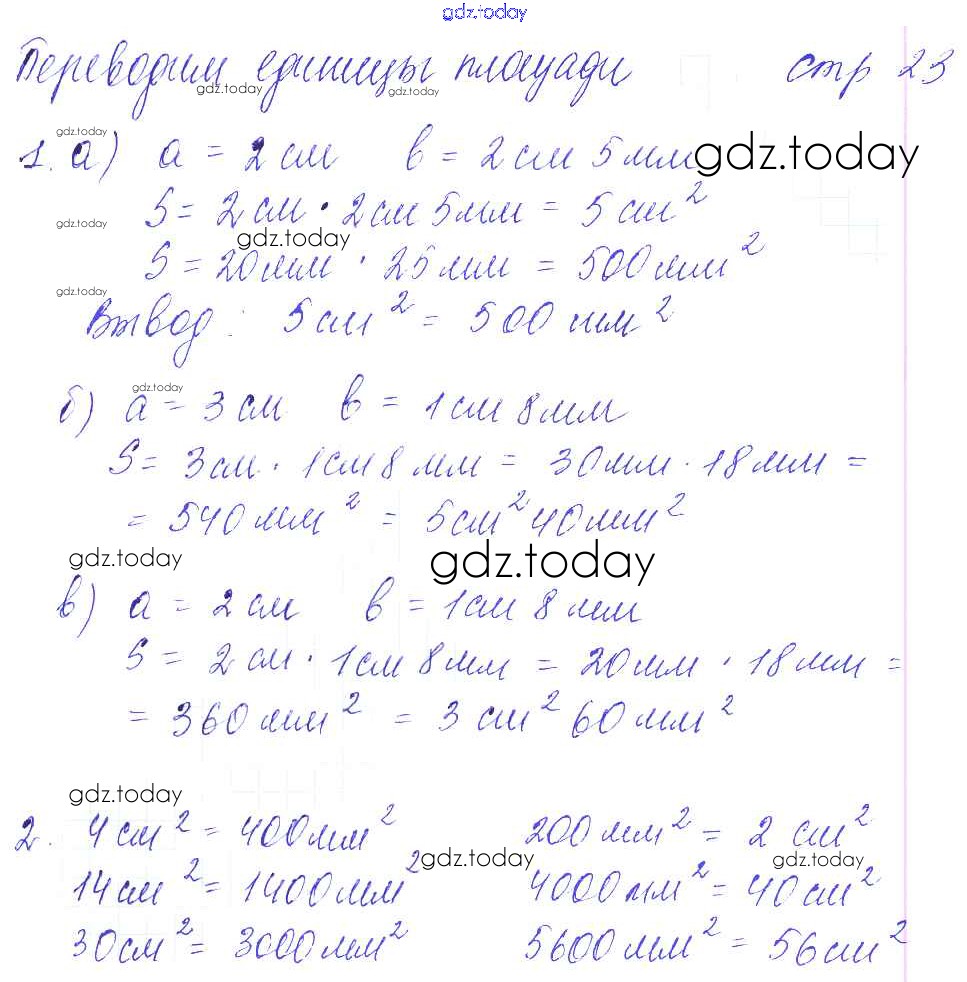 gdz.today
Переводим единицы площади стр 23
gdz.today gdz.today
gdz.today
1. а) a = 2 см b = 2 см 5 мм gdz.today
S = 2 см · 2 см 5 мм = 5 см²
gdz.today gdz.today
S = 20 мм · 25 мм = 500 мм²
gdz.today
Вывод: 5 см² = 500 мм²
gdz.today
б) a = 3 см b = 1 см 8 мм
S = 3 см · 1 см 8 мм = 30 мм · 18 мм =
= 540 мм² = 5 см² 40 мм²
gdz.today gdz.today
в) a = 2 см b = 1 см 8 мм
S = 2 см · 1 см 8 мм = 20 мм · 18 мм =
= 360 мм² = 3 см² 60 мм²
gdz.today
2. 4 см² = 400 мм² 200 мм² = 2 см²
gdz.today gdz.today
14 см² = 1400 мм² 4000 мм² = 40 см²
30 см² = 3000 мм² 5600 мм² = 56 см²